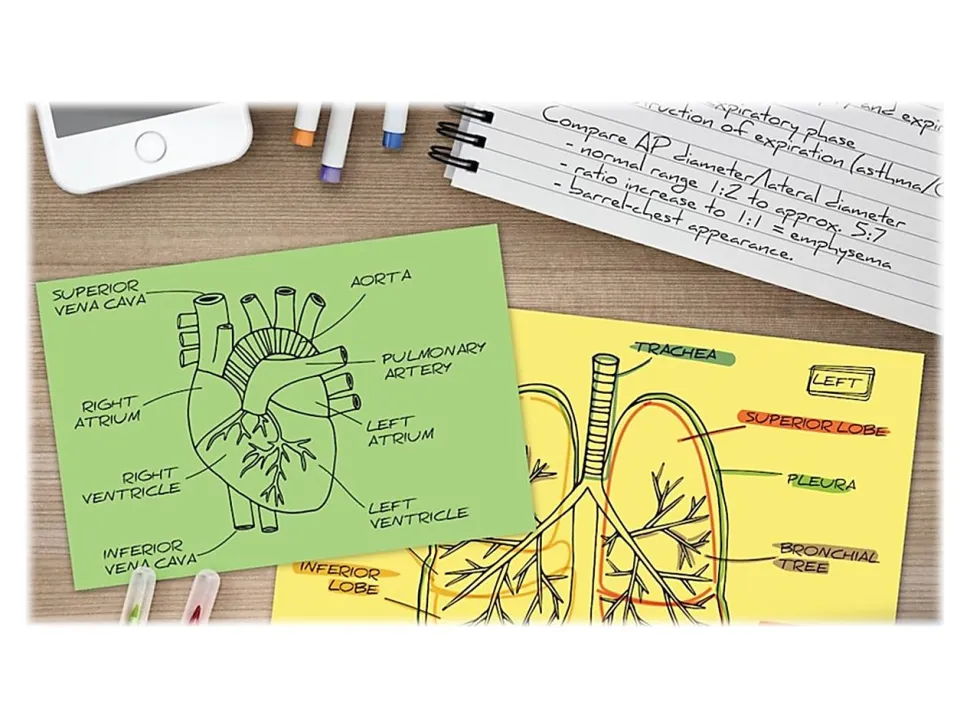 xpiratory phase
ruction of expiration (asthma/
Compare AP diameter/lateral diameter
- normal range 1:2 to approx. 5:7
- ratio increase to 1:1 = emphysema
- barrel-chest appearance.
SUPERIOR
VENA CAVA
AORTA
PULMONARY
ARTERY
RIGHT
ATRIUM
LEFT
ATRIUM
RIGHT
VENTRICLE
LEFT
VENTRICLE
INFERIOR
VENA CAVA
TRACHEA
LEFT
SUPERIOR LOBE
PLEURA
BRONCHIAL
TREE
INFERIOR
LOBE